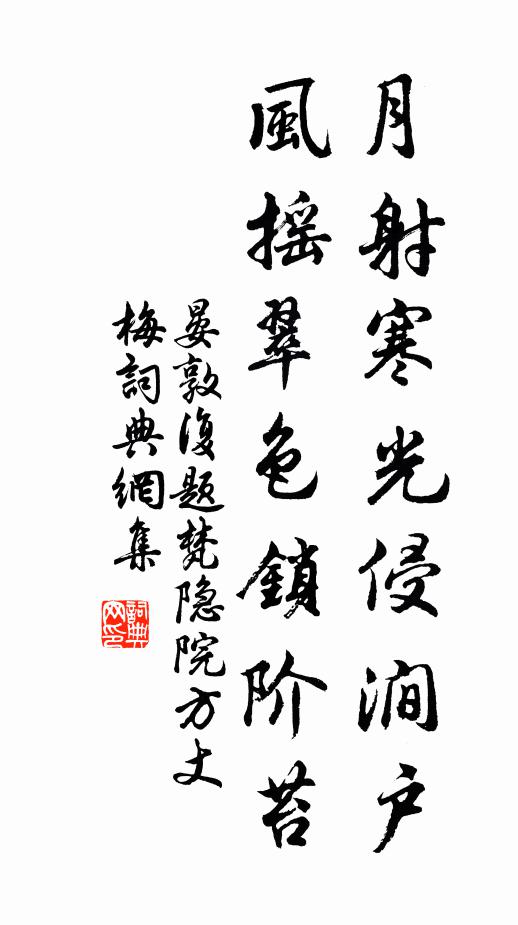 月射寒光侵澗户
風摇翠色鎖阶苔
晏敦復题梵隐院方丈
梅詞典網集
詞典网印